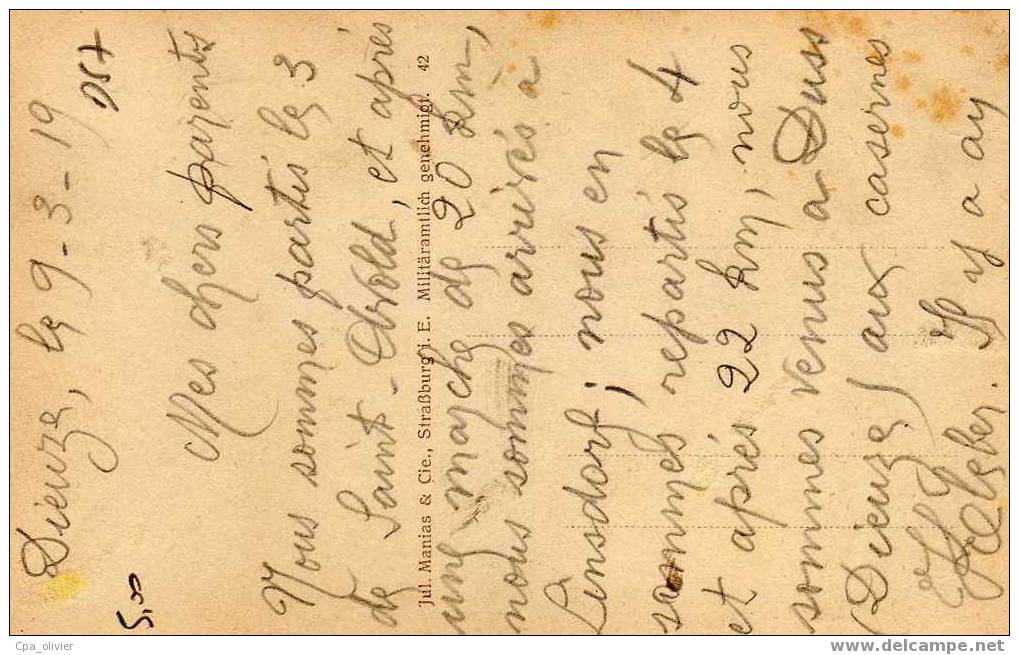 Dieuze, le 9-3-19
Mes chers parents
Nous sommes partis le 3
de Saint-Avold, et après
Jul. Manias & Cie., Straßburg i. E. Militäramtlich genehmigt. 42
une marche de 20 km,
nous sommes arrivés à
Linsdorf; nous en
sommes repartis le 4
et après 22 km, nous
sommes venus a Duss
(Dieuze) aux casernes
Il y a au
5,00
Cpa_olivier
www.delcampe.net